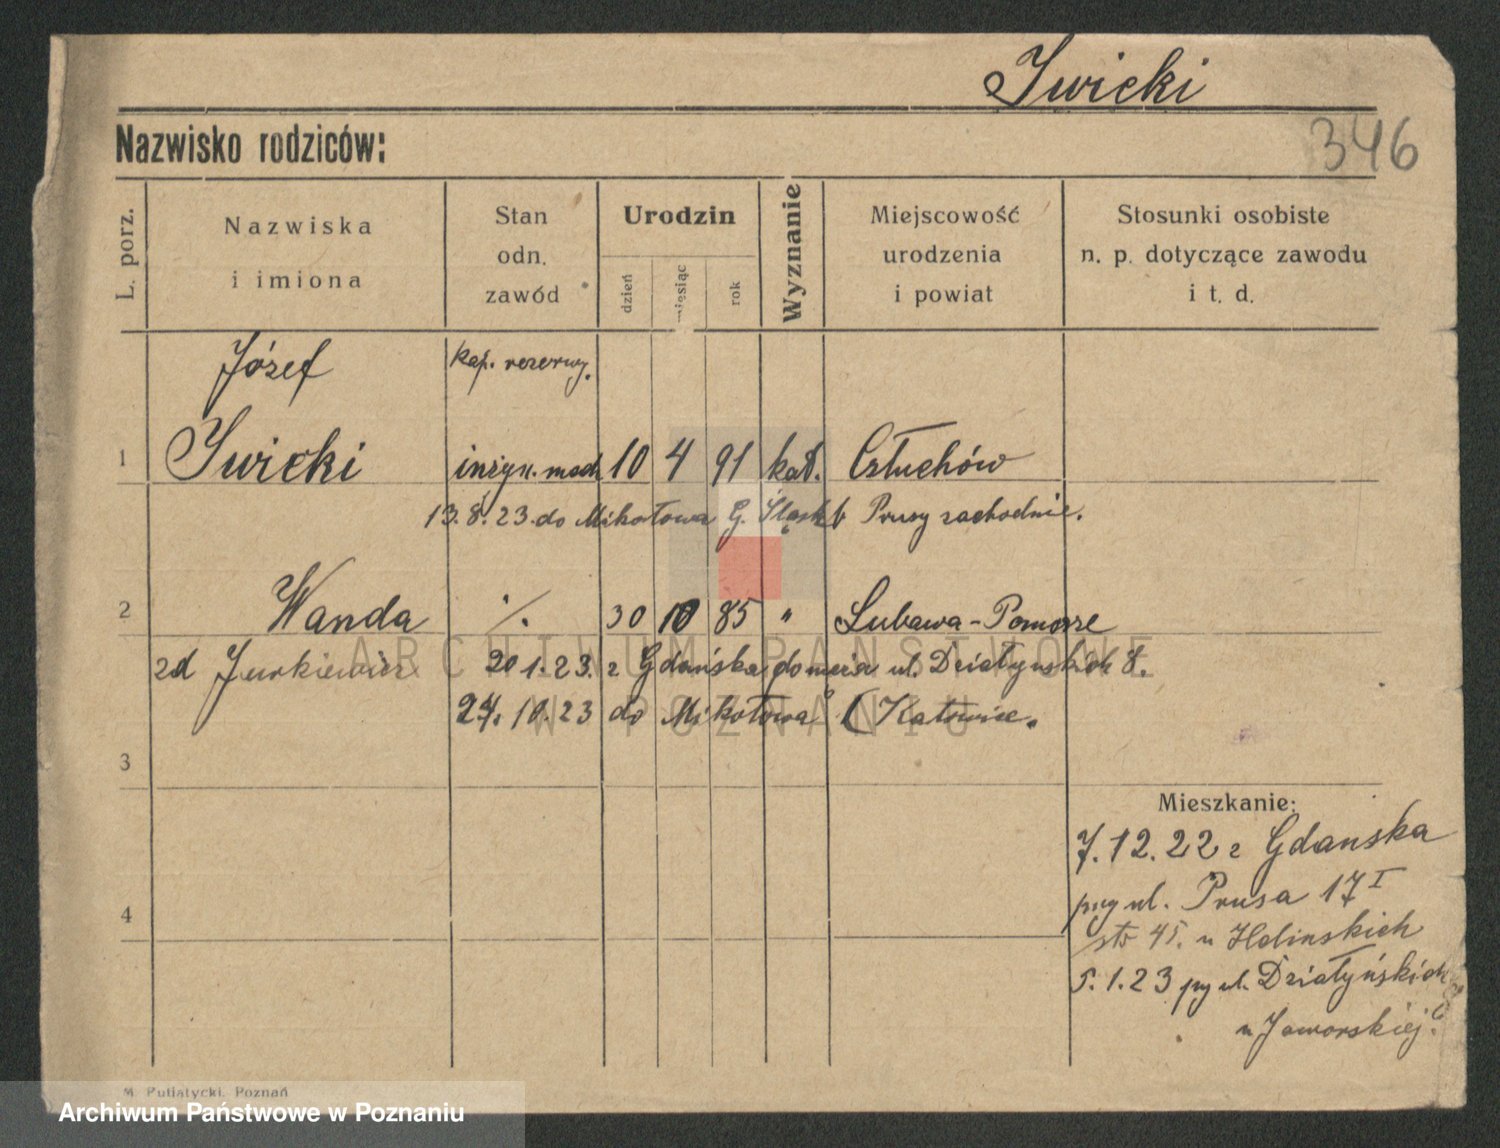 Iwicki
346
Nazwisko rodziców:
L. porz.
Nazwiska
i imiona
Stan
odn.
zawód
Urodzin
dzień
miesiąc
rok
Wyznanie
Miejscowość
urodzenia
i powiat
Stosunki osobiste
n. p. dotyczące zawodu
i t. d.
Józef kap. rezerwy.
1 Iwicki inżyn. mach 10 4 91 kat. Człuchów
13.8.23. do Mikołowa G. Śląsk Prusy zachodnie.
2 Wanda ·/. 30 10 85 " Lubawa-Pomorze
zd Jurkiewicz 20 1.23. z Gdańska do męża ul. Działyńskich 8.
24. 10.23 do Mikołowa (Katowice.
3
Mieszkanie:
7.12.22 z Gdanska
przy ul. Prusa 17 I
str 45. u
4
5.1.23 pzy ul. Działyńskich
u Jaworskiej.
M. Putiatycki, Poznań
ARCHIWUM PAŃSTWOWE
W POZNANIU
Archiwum Państwowe w Poznaniu